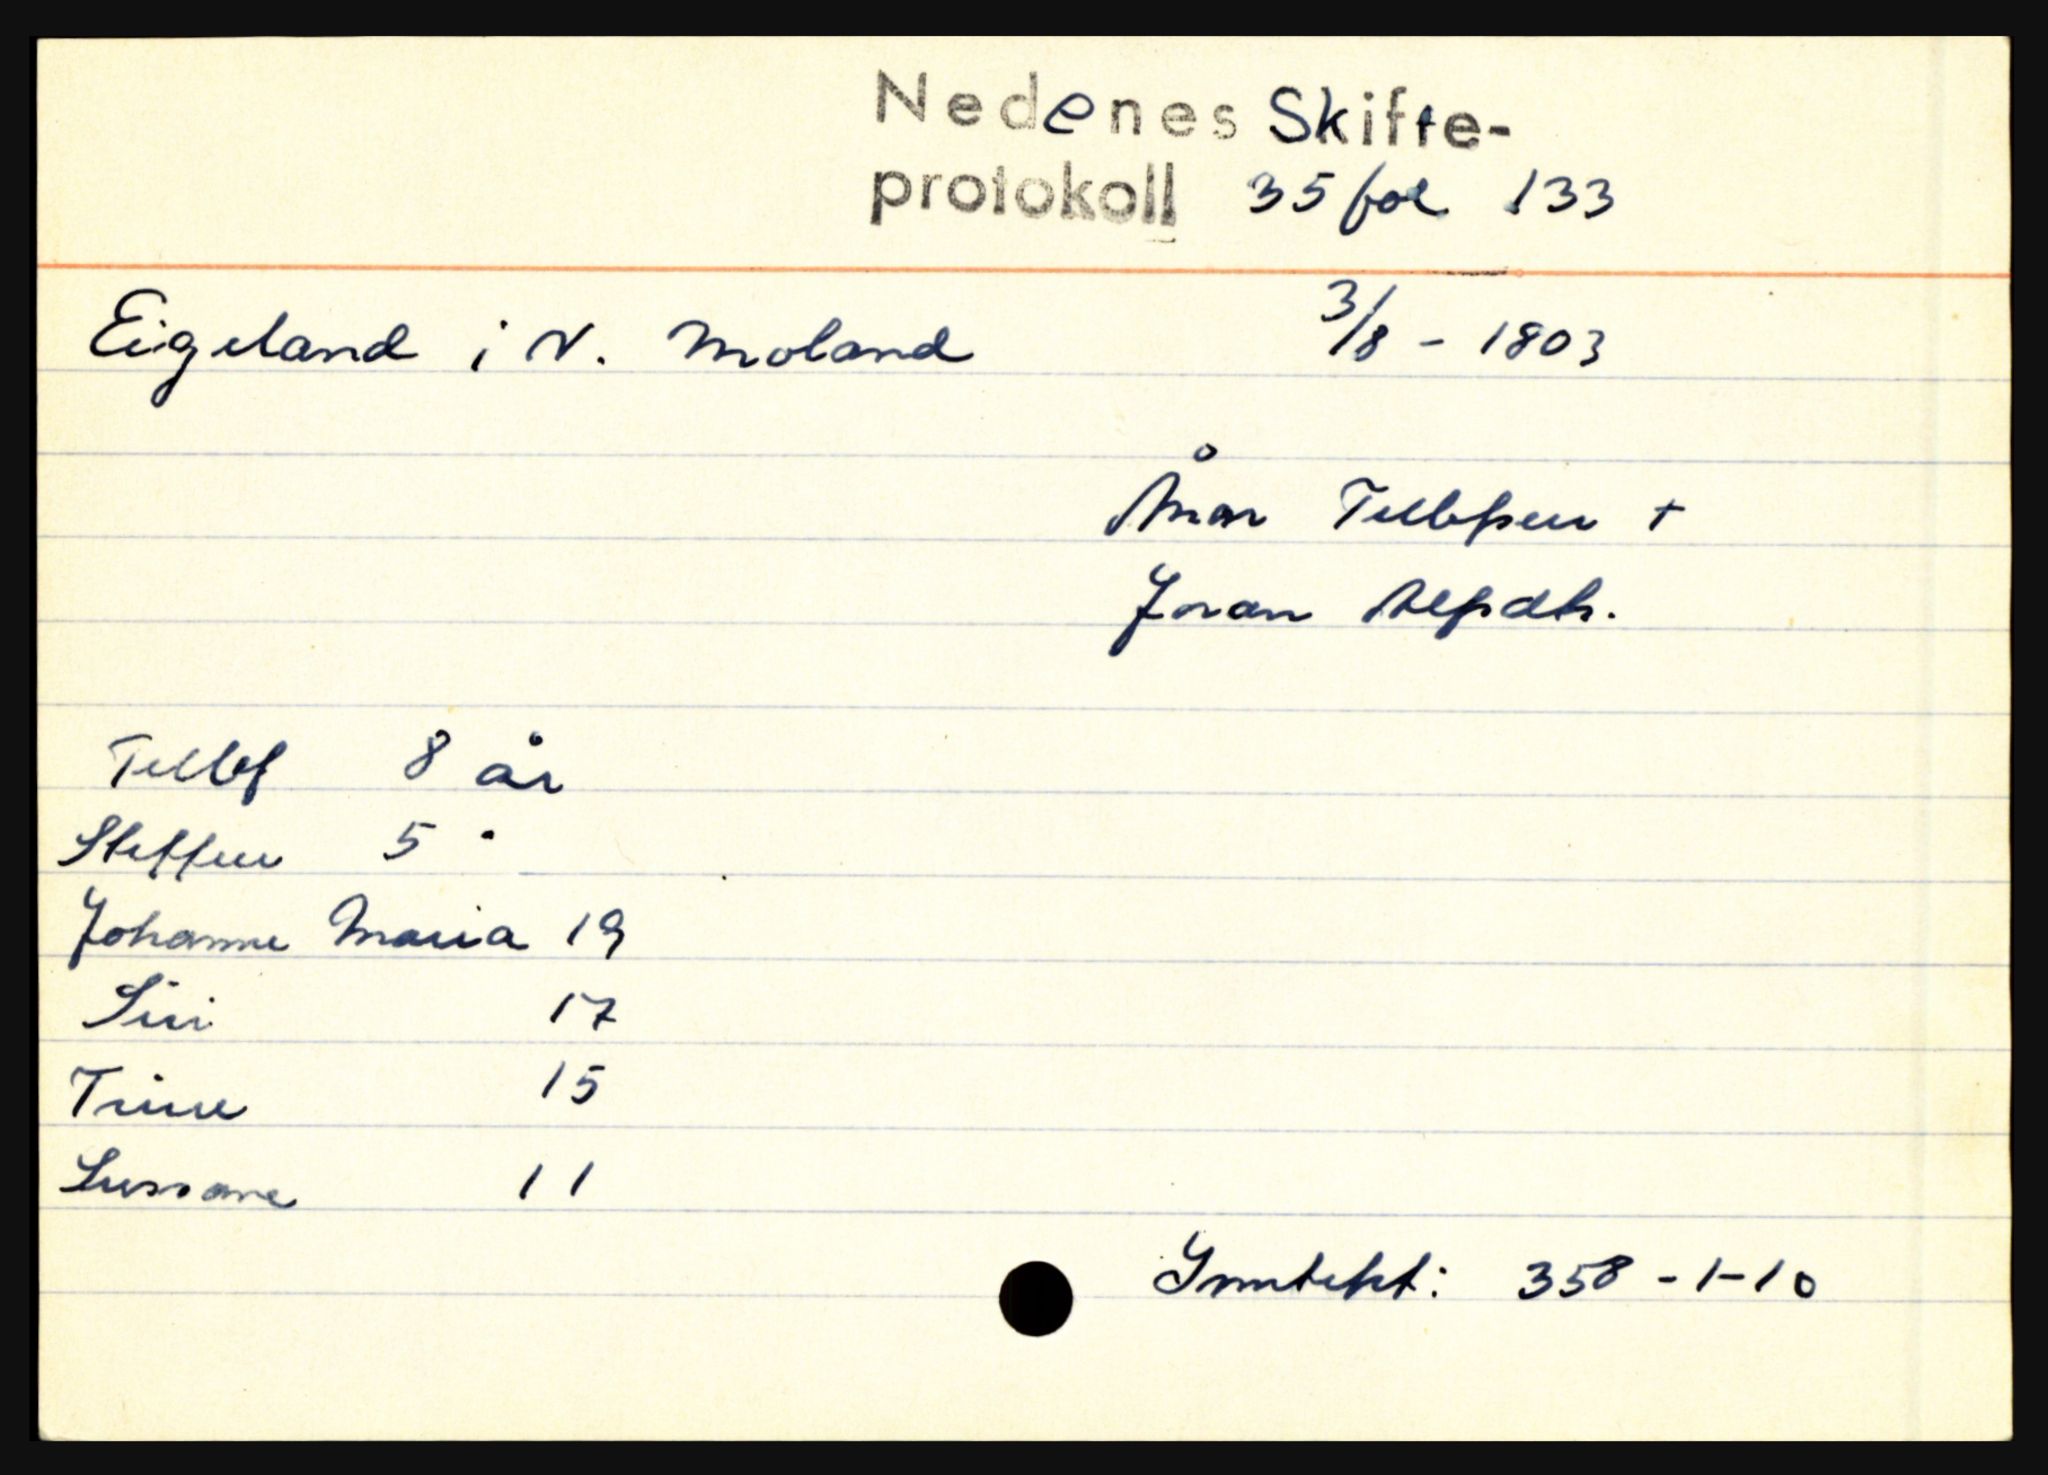 Nedenes Skifte-
protokoll 35 fol 133
Eigeland i V. Moland 3/8 - 1803
Ånon Tellefsen +
Joran Alfsdtr.
Tellef 8 år
Steffen 5 "
Johanne Maria 19
Siri 17
Trine 15
Sussane 11
Inntekt: 358 - 1 - 10